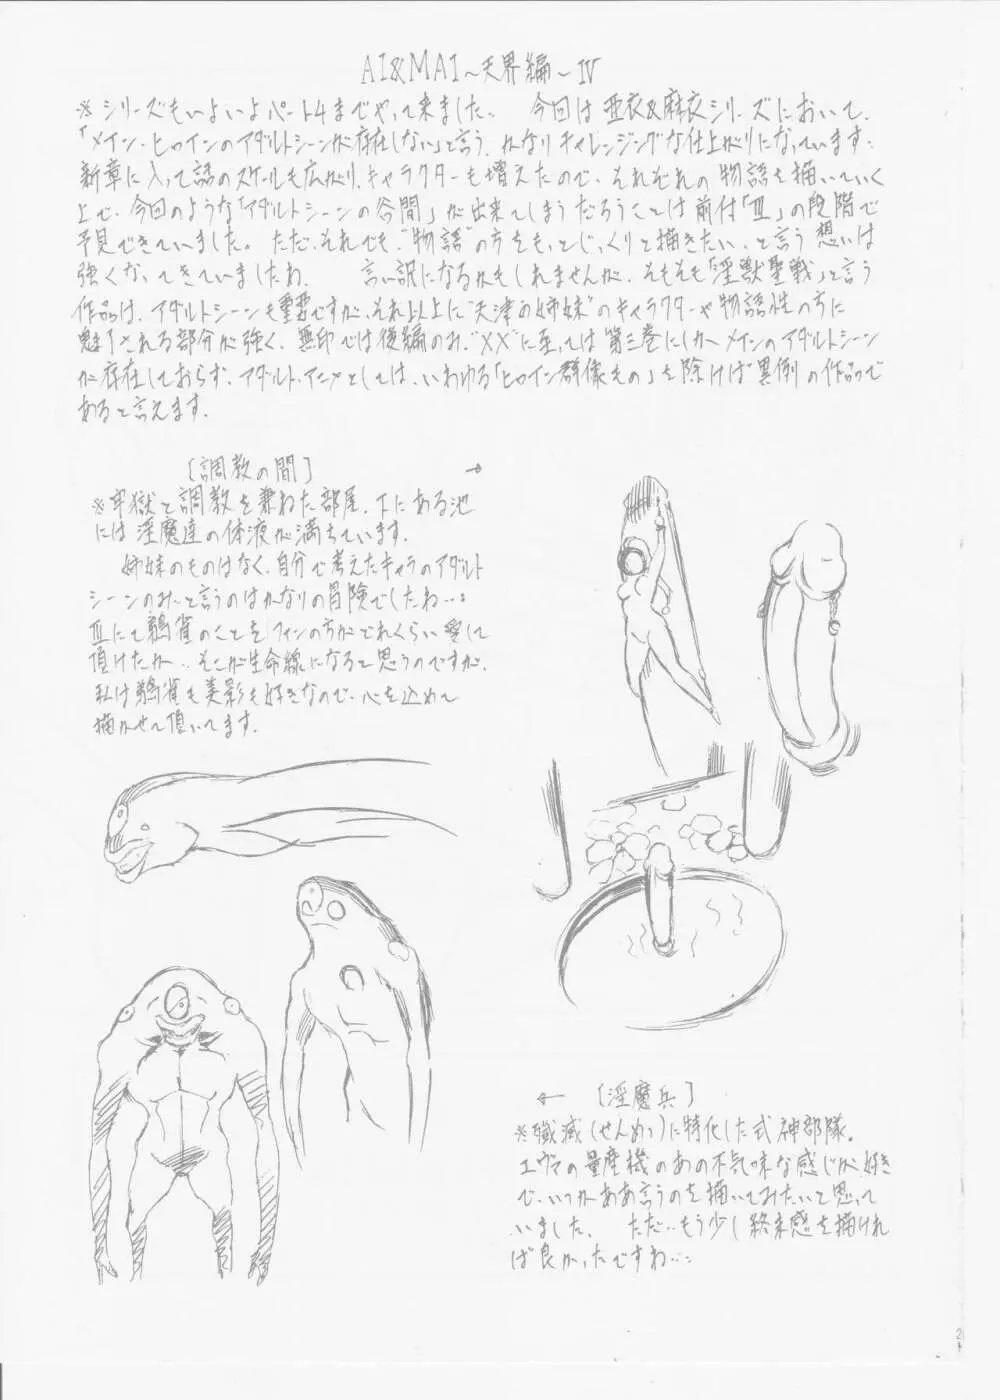 AI&MAI〜天界編〜Ⅳ
※シリーズもいよいよパート4までやって来ました。 今回は亜衣&麻衣シリーズにおいて、
「メイン・ヒロインのアダルトシーンが存在しない」と言う、かなりチャレンジングな仕上がりになっています。
新章に入って話のスケールも広がり、キャラクターも増えたので、それぞれの物語を描いていく
上で、今回のような「アダルトシーンの谷間」が出来てしまうだろうことは前作「Ⅲ」の段階で
予見できていました。ただ、それでも“物語”の方をもっとじっくりと描きたい、と言う想いは
強くなってきていましたね。 言い訳になるかもしれませんが、そもそも「淫獣聖戦」と言う
作品は、アダルトシーンも重要ですが、それ以上に“天津の姉妹”のキャラクターや物語性の方に
魅了される部分が強く、無印では後編のみ、“XX”に至っては第三巻にしかメインのアダルトシーン
が存在しておらず、アダルト・アニメとしては、いわゆる「ヒロイン群像もの」を除けば異例の作品で
あると言えます。
[調教の間] →
※牢獄と調教を兼ねた部屋。下にある池
には淫魔達の体液が満ちています。
姉妹のものはなく、自分で考えたキャラのアダルト
シーンのみ、と言うのはかなりの冒険でしたね…。
Ⅲにて鵺雀のことをファンの方がどれくらい愛して
頂けたか‥そこが生命線になると思うのですが、
私は鵺雀も美影も好きなので、心を込めて
描かせて頂いてます。
← [淫魔兵]
※殲滅(せんめつ)に特化した式神部隊。
エヴァの量産機のあの不気味な感じが好き
で、いつかああ言うのを描いてみたいと思って
いました。 ただ‥もう少し終末感を描けれ
ば良かったですね…。